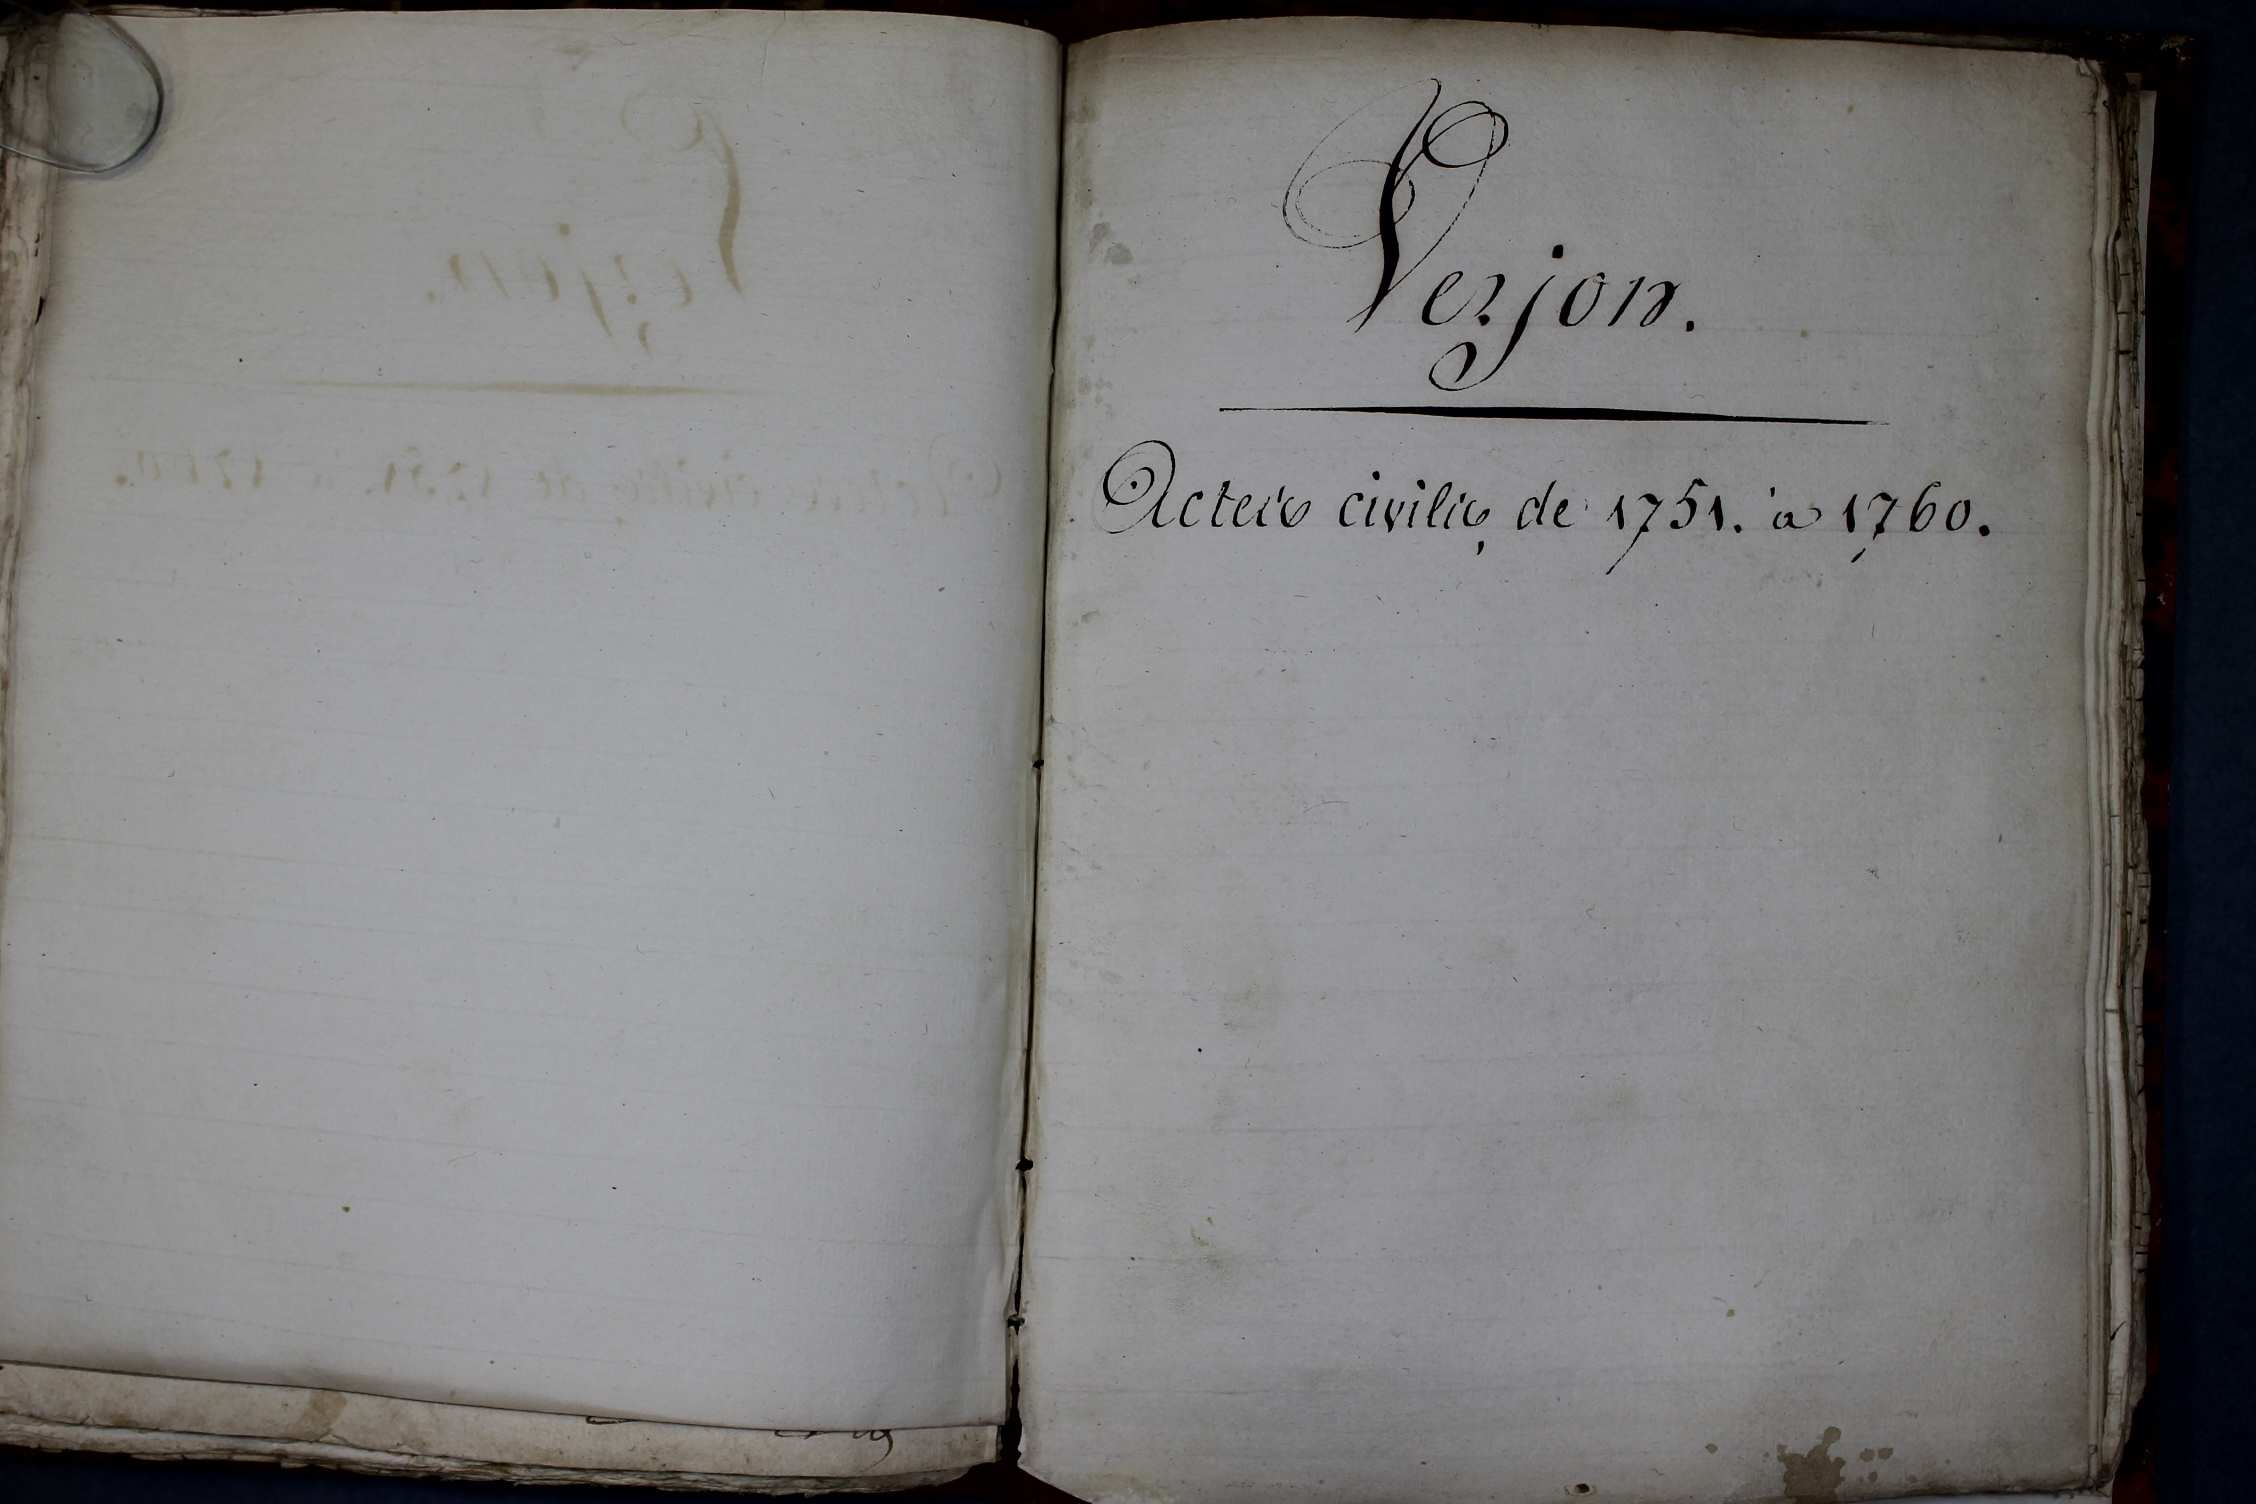 Verjon.
Actes civils, de 1751. à 1760.